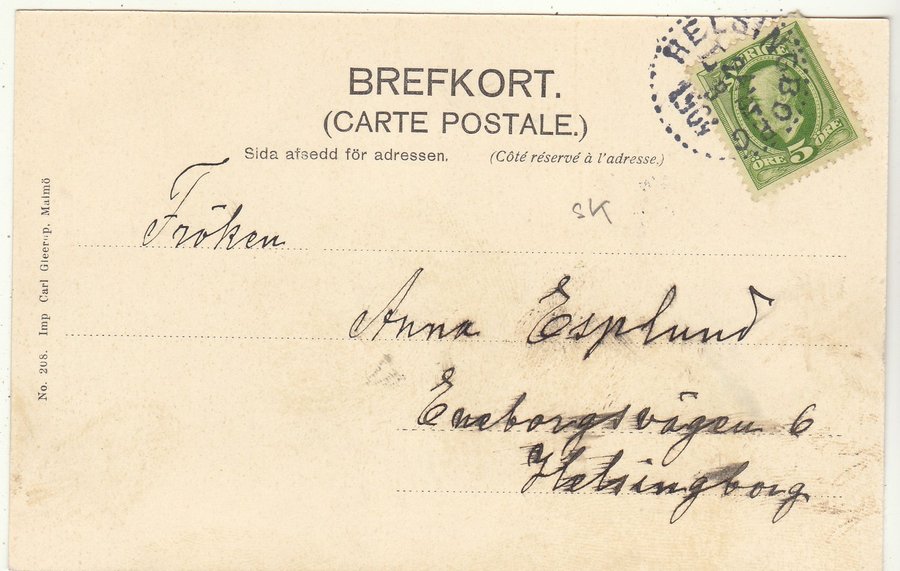 BREFKORT.
(CARTE POSTALE.)
Sida afsedd för adressen. (Côté réservé à l'adresse.)
SVERIGE
ÖRE 5 ÖRE
HELSINGBORG
SK
Fröken
Anna Esplund
Eneborgsvägen 6
Helsingborg
No. 208. Imp Carl Gleerup, Malmö